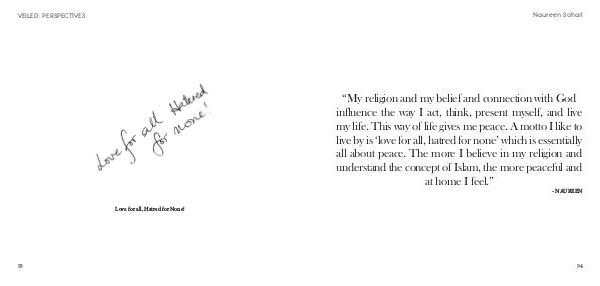 VEILED: PERSPECTIVES
Love for all Hatered
for none!
Love for all, Hatred for None!
Naureen Sohail
“My religion and my belief and connection with God
influence the way I act, think, present myself, and live
my life. This way of life gives me peace. A motto I like to
live by is ‘love for all, hatred for none’ which is essentially
all about peace. The more I believe in my religion and
understand the concept of Islam, the more peaceful and
at home I feel.”
- NAUREEN
94